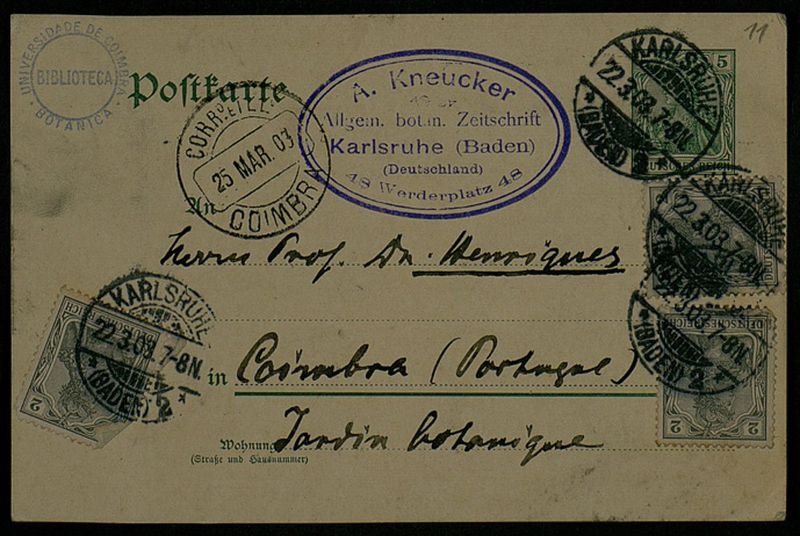 11
UNIVERSIDADE DE COIMBRA
BIBLIOTECA
BOTANICA
Postkarte
25 MAR. 03
COIMBRA
A. Kneucker
Allgem. botan. Zeitschrift
Karlsruhe (Baden)
(Deutschland)
48 Werderplatz 48
5
KARLSRUHE
22.3.03. 7-8N.
(BADEN) 2
An
Herrn Prof. Dr. Henriques
KARLSRUHE
22.3.03. 7-8N.
KARLSRUHE
22.3.03. 7-8N.
(BADEN) 2
2
22.3.03. 7-8N.
(BADEN) 2
DEUTSCHES REICH
2 2
in Coimbra (Portugal)
Wohnung Jardin botanique
(Straße und Hausnummer)